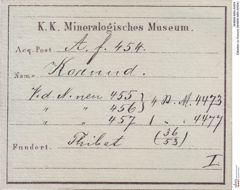 K. K. Mineralogisches Museum.
Acq. Post A. f. 454.
Name Korund.
Vid N. neu 455 } 4 B. M. 4473
" " 456
" " 457 1 " " 4477
Fundort. Thibet (36/53)
I